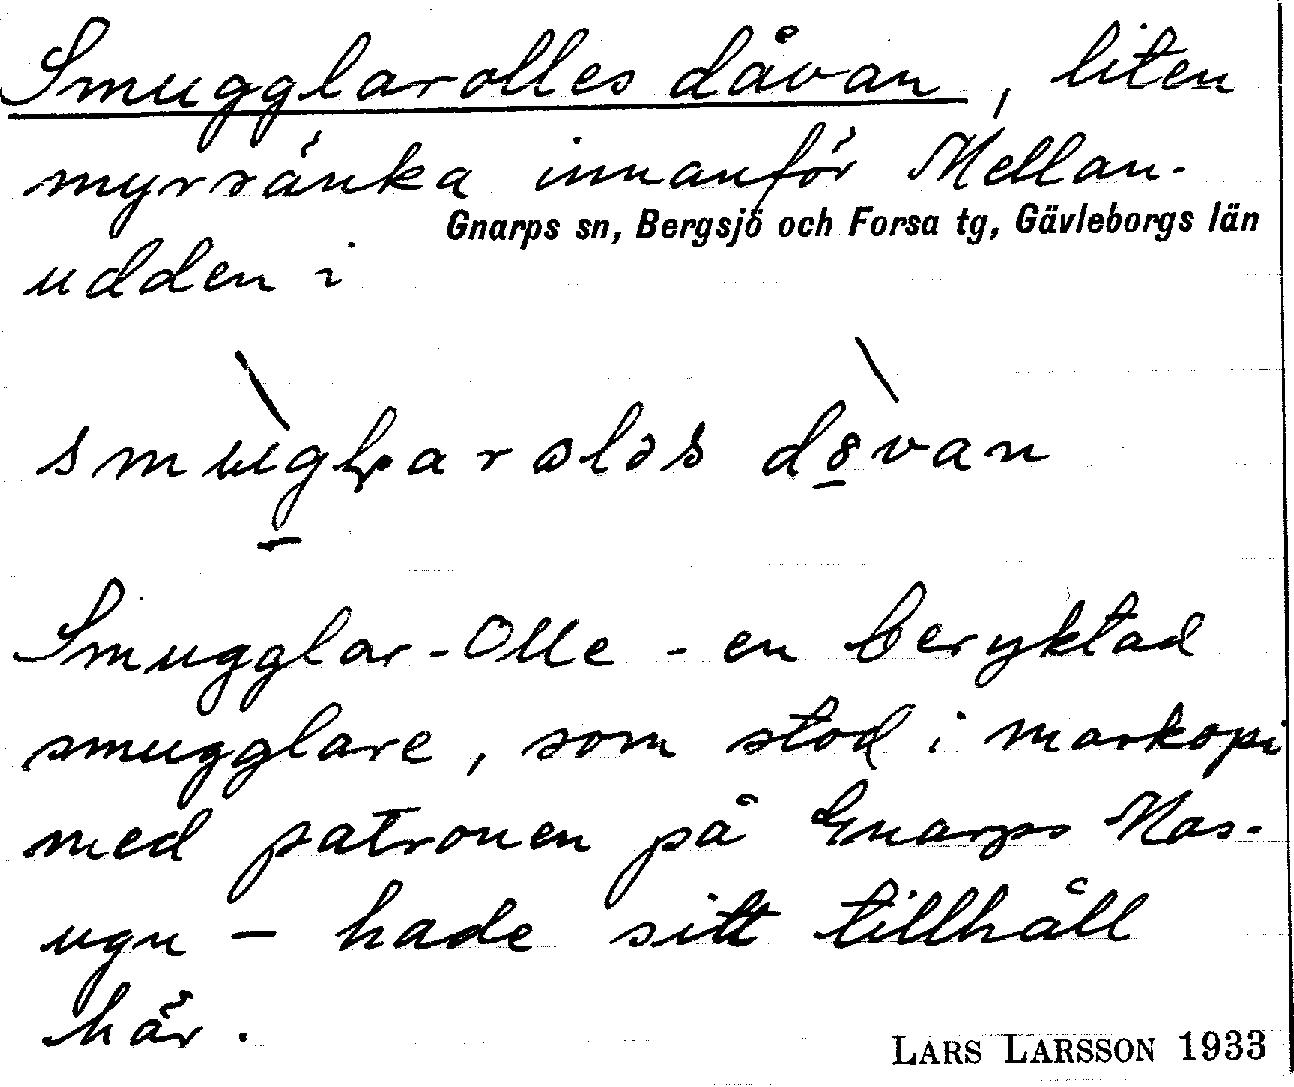 Smugglarolles dåvan, liten
myrsänka innanför Mellan-
Gnarps sn, Bergsjö och Forsa tg, Gävleborgs län
udden i
dåvan
Smugglar-Olle - en beryktad
smugglare, som stod i maskopi
med patronen på Gnarps Mas-
ugn – hade sitt tillhåll
här.
LARS LARSSON 1933